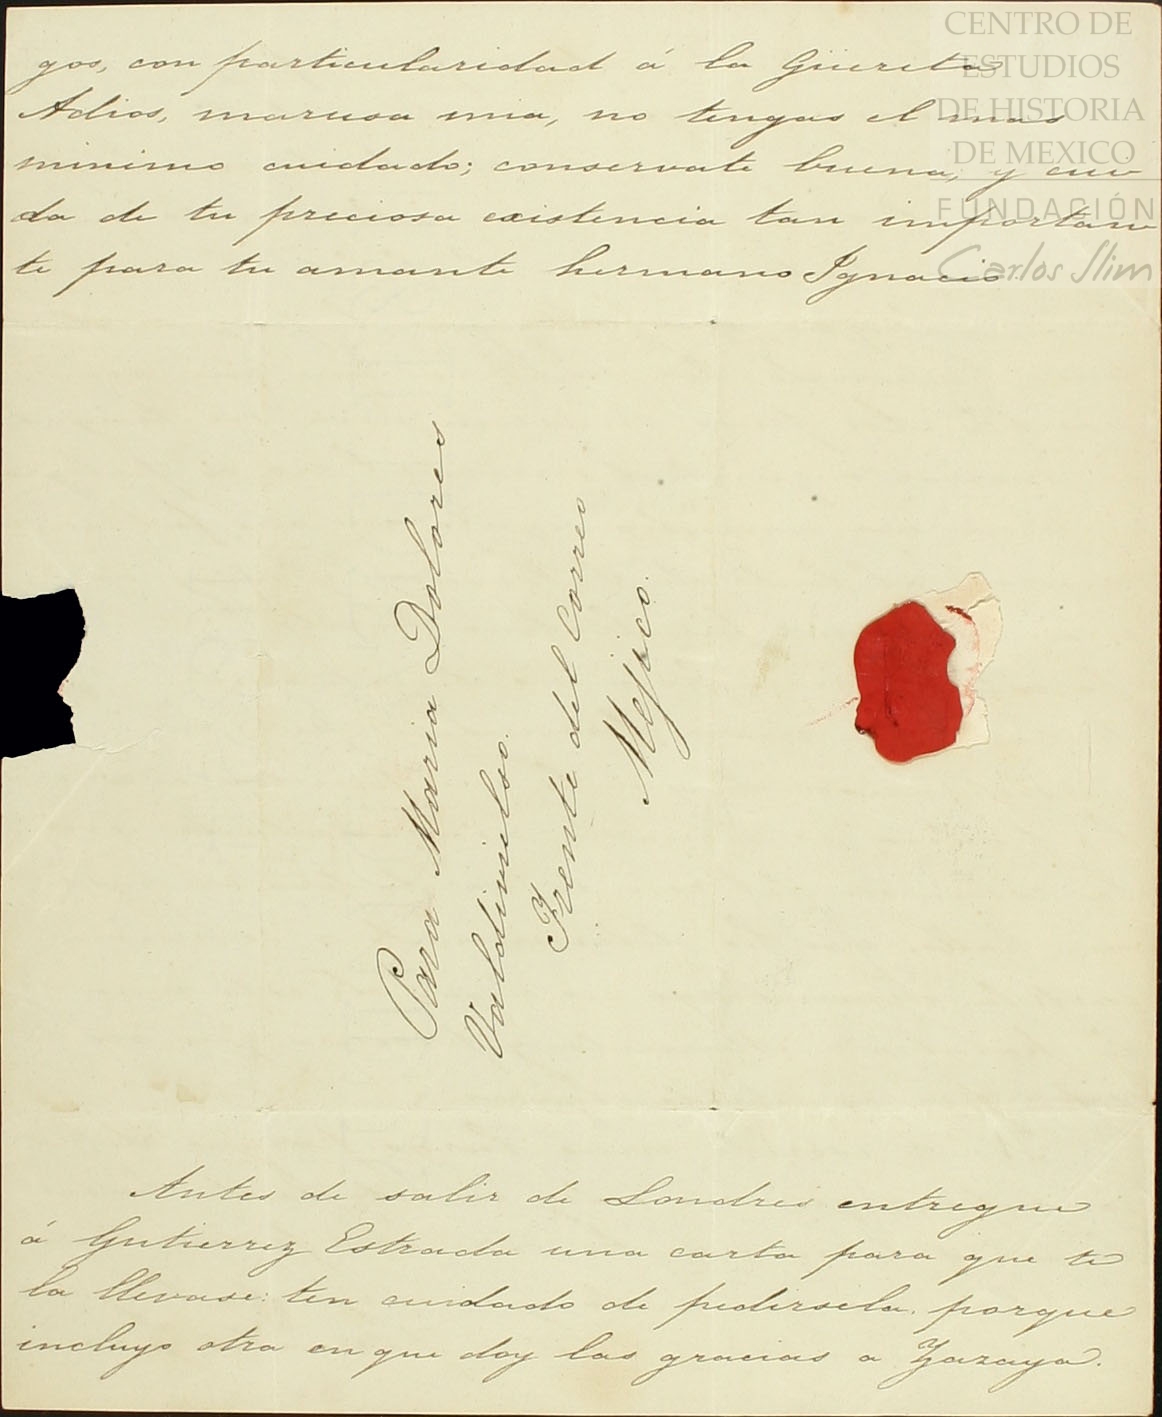 gos, con particularidad á la Güerita
Adios, marusa mia, no tengas el mas
minimo cuidado; conservate buena, y cui
da de tu preciosa existencia tan importan
te para tu amante hermano Ygnacio.
Para Maria Dolores
Valdivielso.
Frente del Correo
Mejico.
Antes de salir de Londres entregue
á Gutierrez Estrada una carta para que te
la llevase: ten cuidado de pedirsela. porque
incluyo otra en que doy las gracias a Zazaya.
CENTRO DE
ESTUDIOS
DE HISTORIA
DE MEXICO
FUNDACIÓN
Carlos Slim